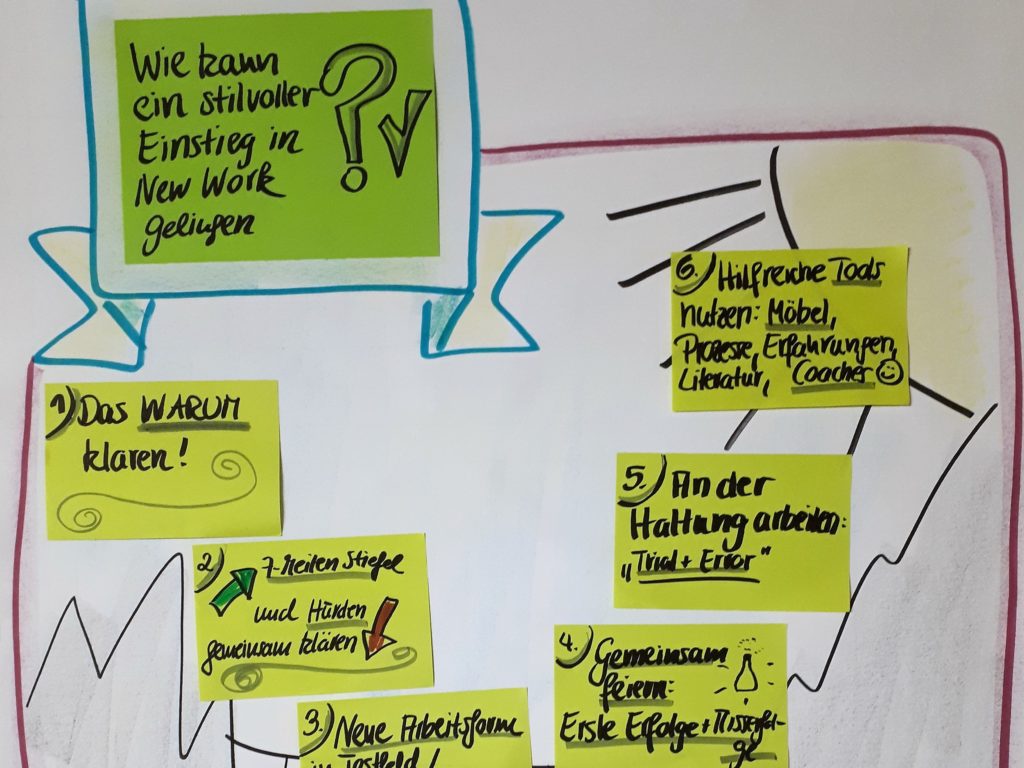 Wie kann
ein stilvoller
Einstieg in
New Work
gelingen
?
1) Das WARUM
klären!
2) 7-Meilen Stiefel
und Hürden
gemeinsam klären
3.) Neue Arbeitsform
im Testfeld!
4.) Gemeinsam
feiern:
Erste Erfolge + Misserfol-
ge
5.) An der
Haltung arbeiten:
„Trial + Error"
6.) Hilfreiche Tools
nutzen: Möbel,
Prozesse, Erfahrungen,
Literatur, Coaches ☺